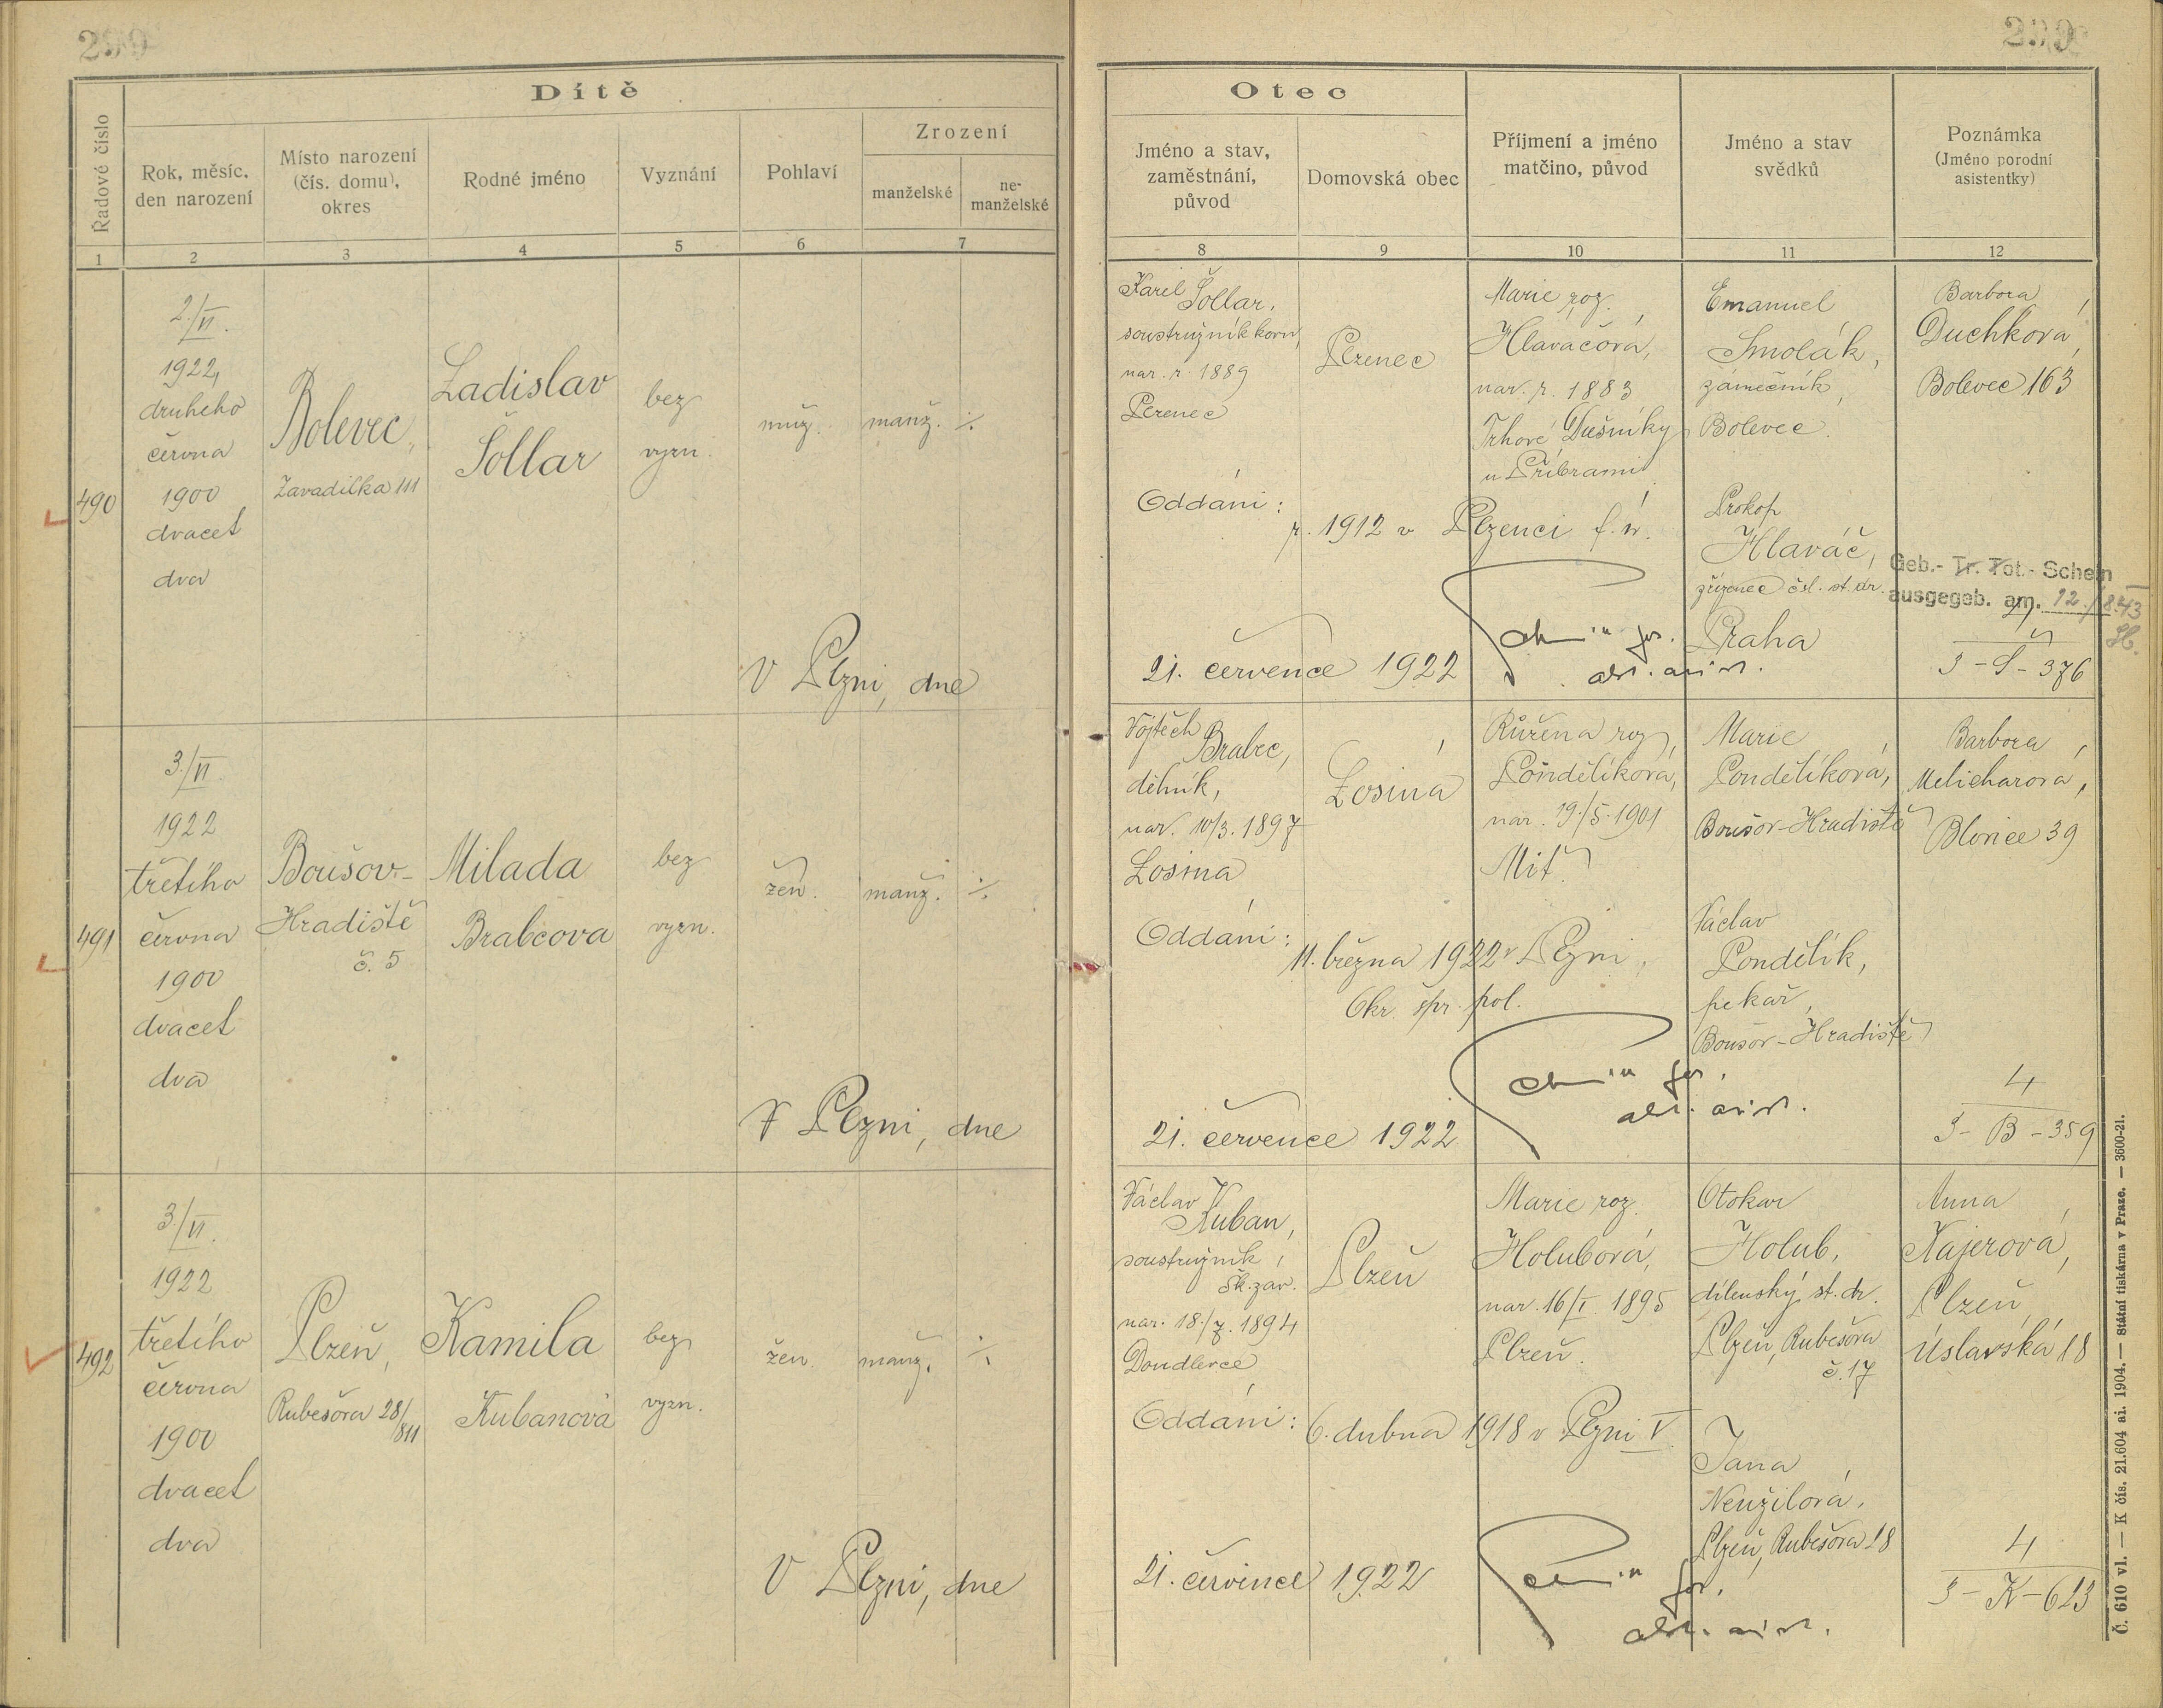 Dítě
Řadové číslo
Rok, měsíc,
den narození
Místo narození
(čís. domu),
okres
Rodné jméno
Vyznání
Pohlaví
Zrození
manželské
ne-
manželské
1
2
3
4
5
6
7
490
2./VI.
1922,
druhého
června
1900
dvacet
dva
Bolevec,
Zavadilka 111
Ladislav
Šollar
bez
vyzn.
muž.
manž.
V Plzni, dne
491
3./VI.
1922
třetího
června
1900
dvacet
dva
Boušov-
Hradiště
č. 5
Milada
Brabcova
bez
vyzn.
žen.
manž.
V Plzni, dne
492
3./VI.
1922
třetího
června
1900
dvacet
dva
Plzeň,
Rubešova 28/
811
Kamila
Kubanova
bez
vyzn.
žen.
manž.
V Plzni, dne
Otec
Jméno a stav,
zaměstnání,
původ
Domovská obec
Příjmení a jméno
matčino, původ
Jméno a stav
svědků
Poznámka
(Jméno porodní
asistentky)
8
9
10
11
12
Karel Šollar,
soustružník kovu,
nar. r. 1889
Plzenec
Marie roz.
Hlaváčová,
nar. r. 1883
Trhové Dušníky
u Příbrami
Emanuel
Smolák,
zámečník,
Bolevec.
Barbora
Duchková,
Bolevec 163
Oddáni:
r. 1912 v Plzenci f. ú.
Prokop
Hlaváč,
zřízenec čsl. st. dr.
Praha
Geb.- Tr. Tot.- Schein
ausgegeb. am. 12./8.43
21. července 1922
3-S-376
Vojtěch
Brabec,
dělník,
nar. 10/3. 1897
Losina
Losiná
Růžena roz.
Pondělíková,
nar. 19./5. 1901
Marie
Pondělíková,
Boušov-Hradiště
Barbora
Melicharová,
Blovice 39
Oddáni:
11. března 1922 v Plzni,
Okr. spr. pol.
Václav
Pondělík,
pekař,
Boušov-Hradiště
21. července 1922
4
3-B-359
Václav
Kuban,
soustružník,
Šk. záv.
nar. 18./7. 1894
Doudlevce
Plzeň
Marie roz.
Holubová,
nar. 16/I. 1895
Plzeň.
Otokar
Holub,
dílenský st. dr.
Plzeň, Rubešova
č. 17
Anna
Kajerová,
Plzeň
Úslavská 18
Oddáni:
6. dubna 1918 v Plzni V.
Jana
Neužilová,
Plzeň, Rubešova 28
21. července 1922
4
3-K-623
Č. 610 vl. — K čís. 21.604 ai. 1904. — Státní tiskárna v Praze. — 3600-21.